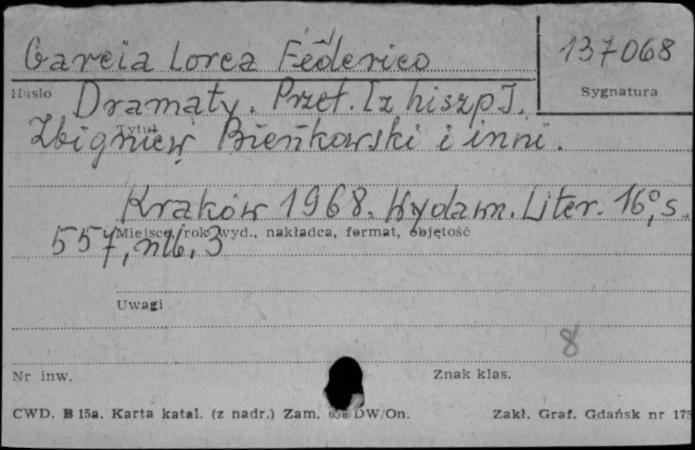 Garcia Lorca Federico
137068
Hasło
Sygnatura
Dramaty. Przeł. [z hiszp].
Tytuł
Zbigniew Bieńkowski i inni.
Kraków 1968. Wydawn. Liter. 16°, s.
Miejsce, rok wyd., nakładca, format, objętość
557, nlb, 3
Uwagi
8
Nr inw.
Znak klas.
CWD. B 15a. Karta katal. (z nadr.) Zam. DW/On.
Zakł. Graf. Gdańsk nr 175